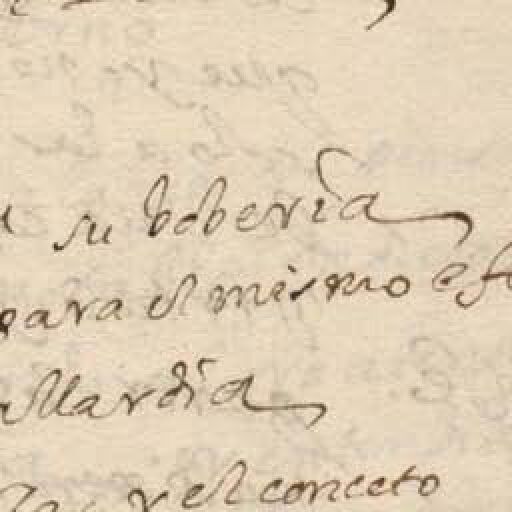 su boberia
para el mismo efe
allardia
y el conceto